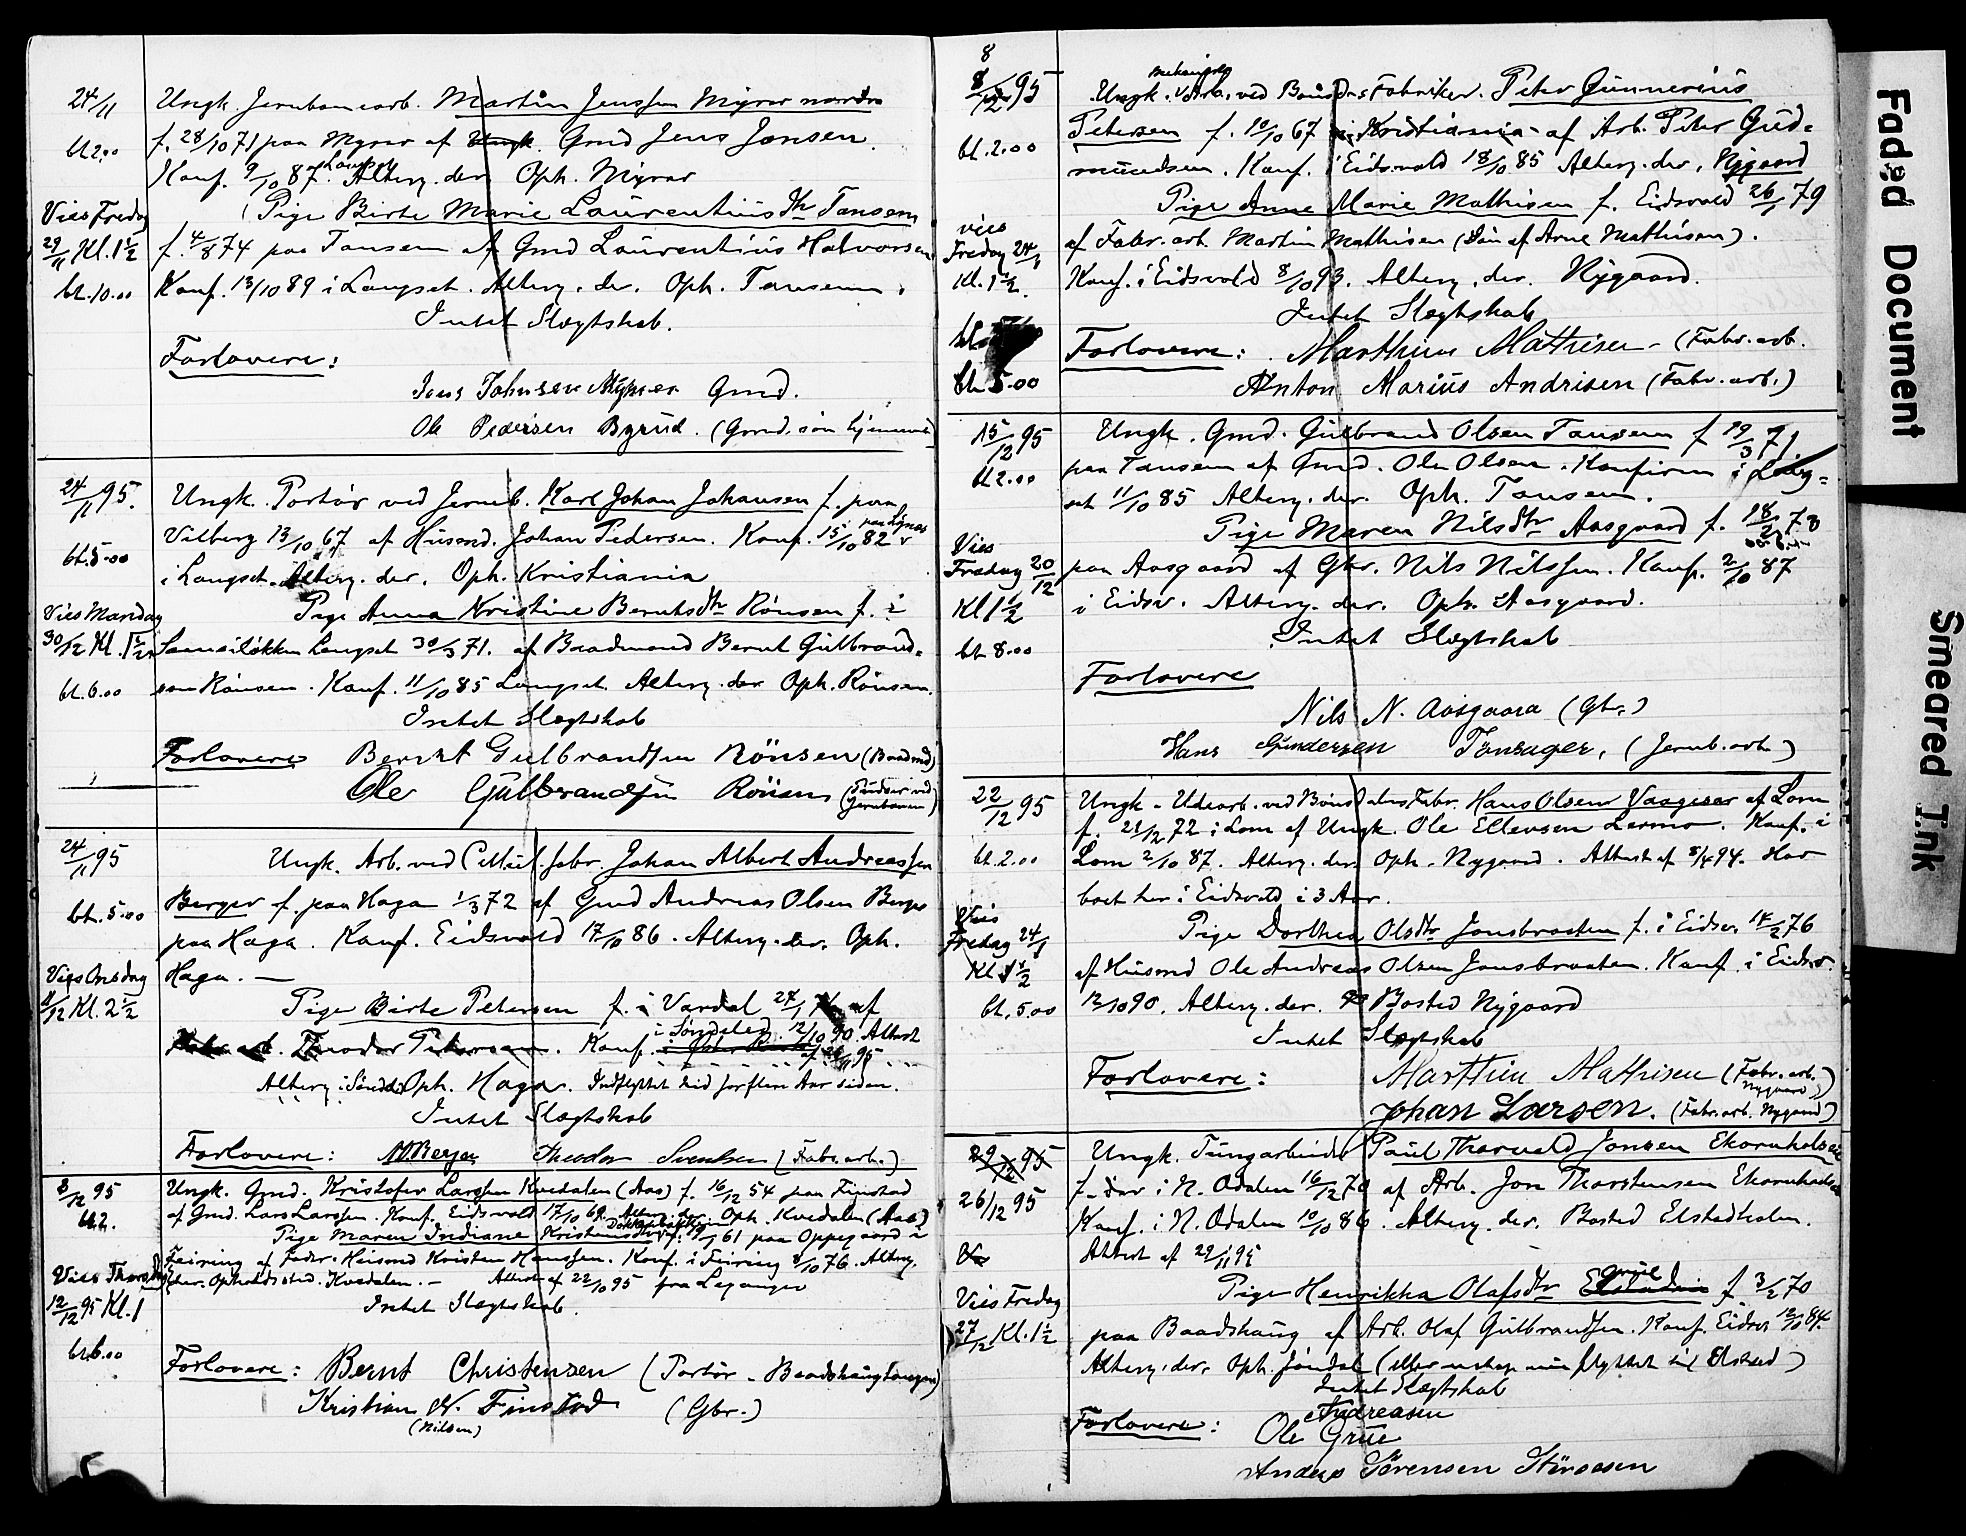 24/11
Ungk. Jernbanearb. Martin Jenssen Myrer nordre
bt. 2.00
f. 28/10 71 paa Myrer af Gmd Jens Jonsen.
Konf. 9/10 87 Langset Alterg. der Oph. Myrer
Vies Fredag
Pige Birte Marie Laurentiusdtr Tansem
29/11 Kl. 1 1/2
f. 4/8 74 paa Tansem af Gmd Laurentius Halvorsen
bt. 10.00
Konf. 13/10 89 i Langset. Alterg. der. Oph. Tansem.
Intet Slegtskab.
Forlovere:
Jens Johnsen Myrer Gmd.
Ole Pedersen Byrud. (Gmd. søn
24/11 95.
Ungk. Portør ved Jernb. Karl Johan Johansen f. paa
Vilberg 13/10 67 af Husmd. Johan Pedersen. Konf. 15/10 82
bt. 5.00
i Langset. Alterg. der. Oph. Kristiania
Pige Anna Kristine Berntsdtr Rönsen f. i
Vies Mandag
30/12 Kl. 1 1/2
Langset 30/3 71. af Baadmand Bernt Gulbrand-
bt. 6.00
sen Rönsen. Konf. 11/10 85 Langset. Alterg. der Oph. Rönsen.
Intet Slegtskab
Forlovere Bernt Gulbrandsen Rönsen (Baadmd)
Ole Gulbrandsen Rönsen (Pudser ved Jernbanen)
24/11 95
Ungk. Arb. ved Cellul. fabr. Johan Albert Andreassen
bt. 5.00
Berger f. paa Haga 1/3 72 af Gmd Andreas Olsen Berger
paa Haga. Konf. Eidsvold 17/10 86. Alterg. der. Oph.
Vies Onsdag
Haga. —
11/12 Kl. 2 1/2
Pige Birte Petersen f. i Vardal 27/1 af
i Søndeled 12/10 90. Attest
Fabr. arb. Theodor Petersen. Konf.
af 26/11 95
Alterg. i Sønd. Oph. Haga. Indflyttet hid for flere Aar siden.
Intet Slegtskab
Forlovere: Berger Theodor Svendsen (Fabr. arb.)
8/12 95
Ungk. Gmd. Kristofer Larssen Kvedalen (Aas) f. 16/12 54 paa Finstad
bt 2.
af Gmd. Lars Larssen. Konf. Eidsvold 17/10 69. Alterg. der. Oph. Kvedalen (Aas)
Pige Maren Indiane Kristensdtr 61 paa Oppegaard i
Feiring af Fader: Husmd Kristen Hanssen. Konf. i Feiring 8/10 76. Alterg.
Vies Thorsdag
der. Opholdssted. Kvedalen. — Attest af 22/10 95 fra
12/12 95 Kl. 1
Intet Slegtskab.
bt. 6.00
Forlovere: Bernt Christensen (Portør - Baadshaugtangen)
Kristian N. Finstad (Gbr.)
(Nilsen)
8
8/12 95
Ungk. Arb. ved Bönsdalens Fabriker. Peter Gunnerius
bt. 2.00
Petersen f. 10/10 67 i Kristiania af Arb. Peter Gud-
mundsen. Konf. i Eidsvold 18/10 85 Alterg. der. Nygaard
Pige Anne Marie Mathisen f. Eidsvold 26/1 79
vies
Fredag 24/1
af Fabr. arb. Martin Mathisen (Søn af Arne Mathisen).
Kl. 1 1/2.
Konf. i Eidsvold 8/10 93. Alterg. der. Nygaard.
Intet Slegtskab
Forlovere: Marthin Mathisen - (Fabr. arb.
bt 5.00
Anton Marius Andrisen (Fabr. arb.)
15/12 95
Ungk. Gmd. Gulbrand Olsen Tansem f 19/3 71
bt 2.00
paa Tansem af Gmd. Ole Olsen. Konfirm i Lang-
set 11/10 85 Alterg. der. Oph. Tansem.
Pige Maren Nilsdtr Aasgaard f. 18/2 73
Vies
Fredag 20/12
paa Aasgaard af Gbr. Nils Nilssen. Konf. 2/10 87
Kl 1 1/2
i Eidsv. Alterg. der. Oph. Aasgaard.
Intet Slegtskab
bt 8.00
Forlovere
Nils N. Aasgaard (Gbr.)
Hans Gundersen Tønsager, (Jernb. arb)
22/12 95
Ungk - Udearb. ved Bönsdalens Fabr. Hans Olsen Vaageser af Lom
f. 21/12 72 i Lom af Ungk. Ole Ellevsen Lermo. Konf. i
bt. 2.00
Lom 2/10 87. Alterg. der. Oph. Nygaard. Attest af 8/4 94. Har
boet her i Eidsvold i 3 Aar.
Vies
Fredag 24/1
Pige Dorthea Olsdtr Jonsbraaten f. i Eidsv. 14/2 76
Kl. 1 1/2
af Husmd Ole Andreas Olsen Jonsbraaten. Konf. i Eidsv.
bt. 5.00
12/10 90. Alterg. der. Bosted Nygaard
Intet Slegtskab
Forlovere: Marthin Mathisen (Fabr. arb. Nygaard)
Johan Larsen. (Fabr. arb. Nygaard)
29/12 95
Ungk. Tungarbeider Paul Thorvald Jonsen Ekornholmen
26/12 95
f. der i N. Odalen 16/12 70 af Arb. Jon Thorstensen Ekornholmen
Konf. i N. Odalen 10/10 86. Alterg. der. Bosted Elstadholm.
Attest af 29/11 95
Pige Henrikka Olafsdtr Grue f 3/2 70
Vies Fredag
27/12 Kl. 1 1/2
paa Baadshaug af Arb. Olaf Gulbrandsen. Konf. Eidsv 12/10 84.
Alterg. der. Oph. Jöndal (eller nu flyttet til Elstad)
Intet Slegtskab
Forlovere: Ole Andreasen Grue
Anders Sörensen Störaasen
Faded Document
Smeared Ink